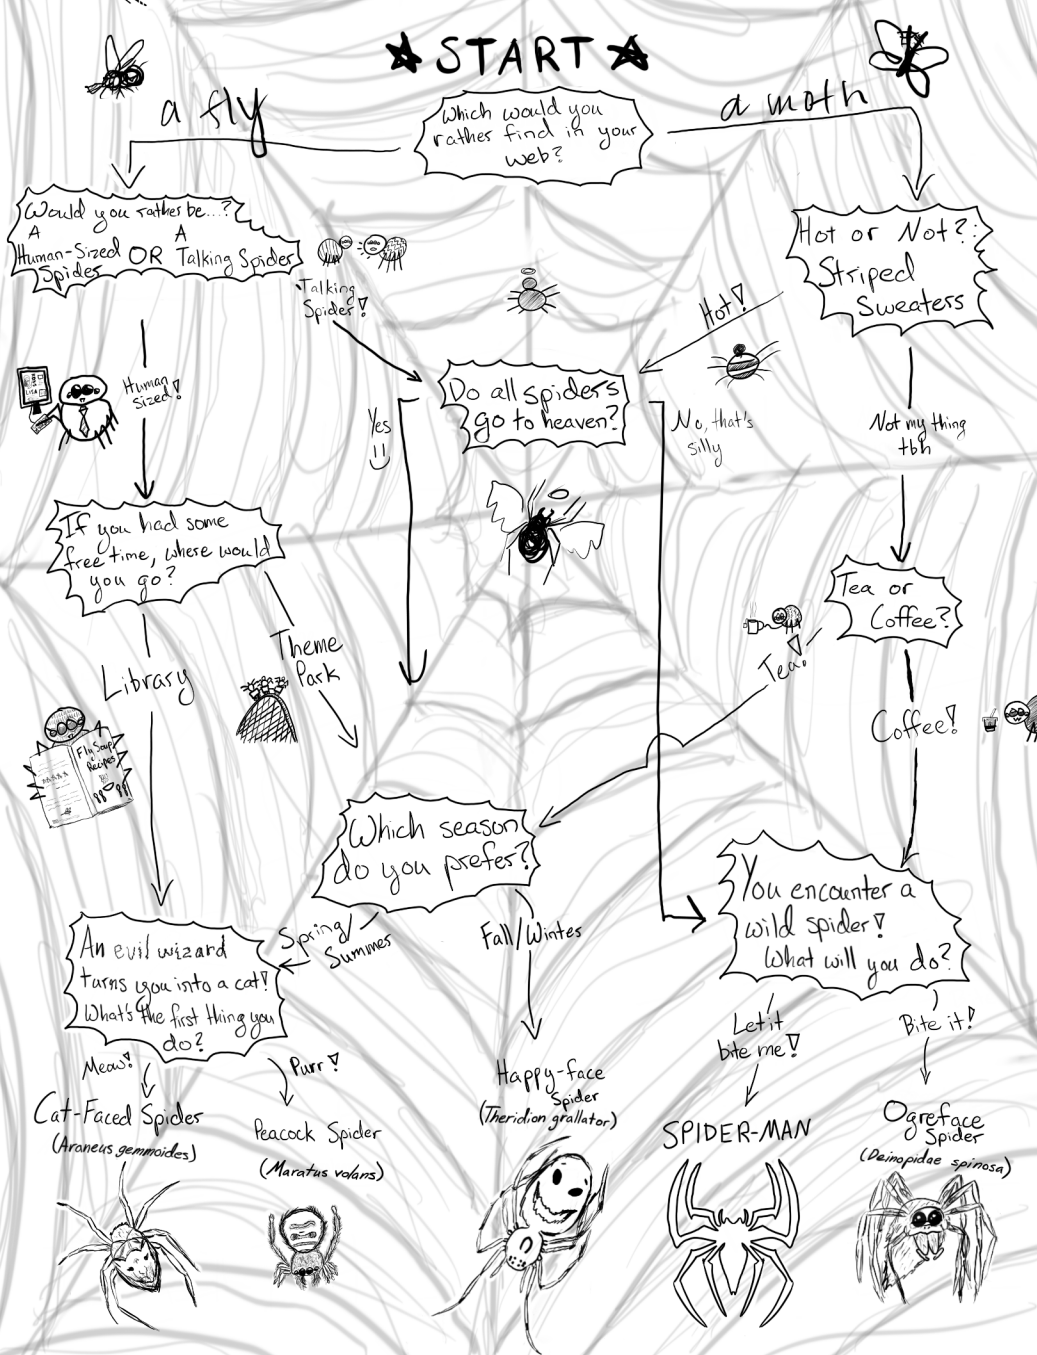 START
Which would you
rather find in your
web?
a fly
a moth
Would you rather be...?
A
Human-Sized
Spider
OR
A
Talking Spider
Talking
Spider!
Hot or Not?:
Striped
Sweaters
Hot!
Human
sized!
Do all spiders
go to heaven?
Yes
=)
No, that's
silly
Not my thing
tbh
If you had some
free time, where would
you go?
Tea or
Coffee?
Theme
Park
Library
Tea!
Coffee!
Fly Soup
Recipes
Which season
do you prefer?
You encounter a
wild spider!
What will you do?
Spring/
Summer
Fall/Winter
An evil wizard
turns you into a cat!
What's the first thing you
do?
Let it
bite me!
Bite it!
Meow!
Purr!
Cat-Faced Spider
(Araneus gemmoides)
Peacock Spider
(Maratus volans)
Happy-face
Spider
(Theridion grallator)
SPIDER-MAN
Ogreface
Spider
(Deinopidae spinosa)